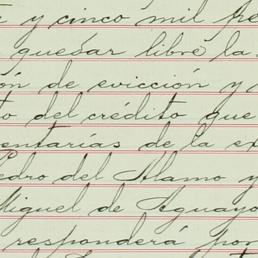 y cinco mil tre
quesar libre la
ón de evicción y
to del crédito que
entarías de la ex
Pedro del Alamo y
Miguel de Aguayo
responderá por